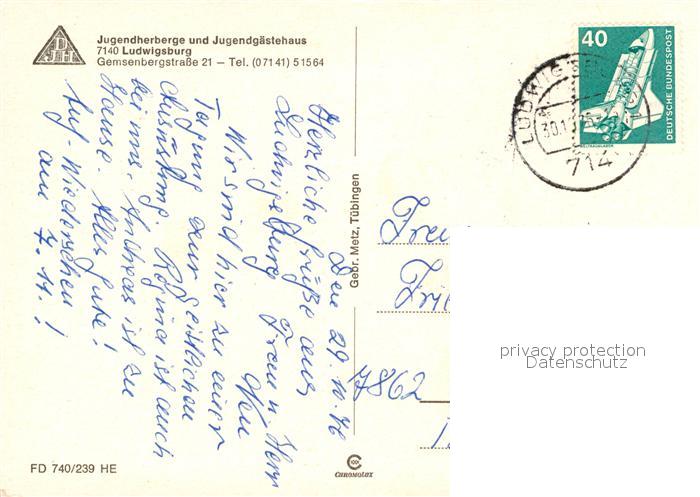 DJH
Jugendherberge und Jugendgästehaus
7140 Ludwigsburg
Gemsenbergstraße 21 – Tel. (07141) 51564
Den 29.10.76
Herzliche Grüße aus
Ludwigsburg Frau u. Herrn
Wir sind hier zu einer
Tagung zur geistlichen
Ausrüstung. Regina ist auch
bei uns. Andreas ist zu
Hause. Alles Gute!
Auf-Wiedersehen
am 7.11.!
Gebr. Metz, Tübingen
40
DEUTSCHE BUNDESPOST
WELTRAUMLABOR
LUDWIGSBU
30.10.
714
7862
privacy protection
Datenschutz
FD 740/239 HE
CHROMOLUX